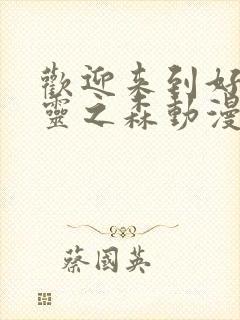 歡迎来到好
靈之森動漫
蔡國英